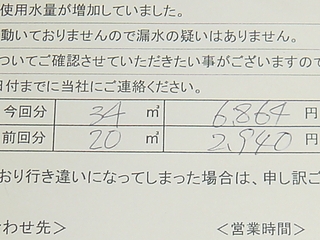 使用水量が増加していました。
動いておりませんので漏水の疑いはありません。
ついてご確認させていただきたい事がございますので
日付までに当社にご連絡ください。
今回分 34 ㎥ 6,864 円
前回分 20 ㎥ 2,940 円
おり行き違いになってしまった場合は、申し訳ご
わせ先＞ ＜営業時間＞